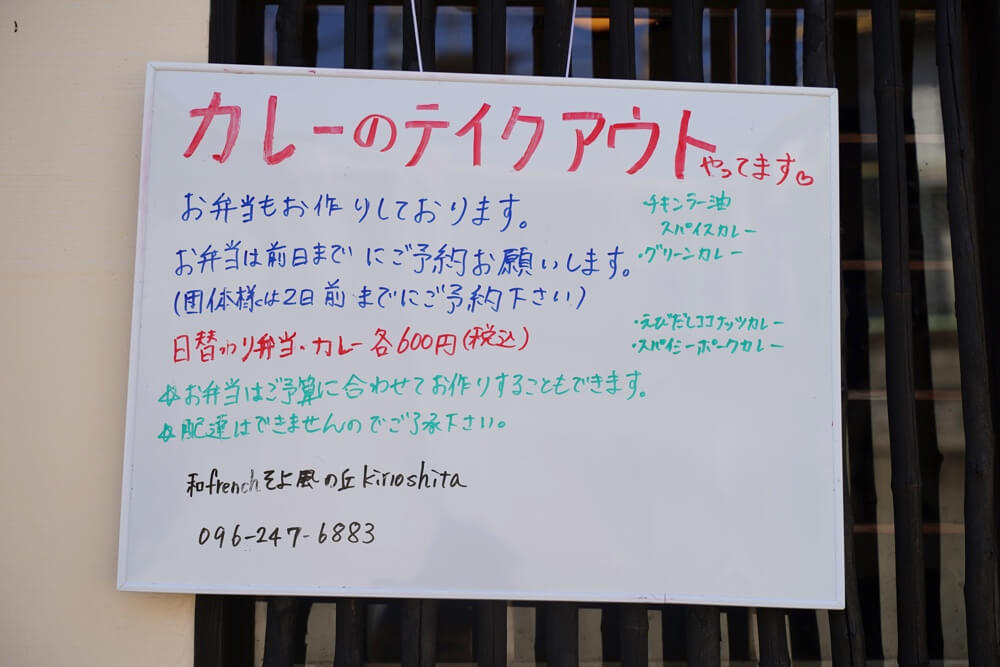 カレーのテイクアウトやってます♡
お弁当もお作りしております。
お弁当は前日までにご予約お願いします。
(団体様は2日前までにご予約下さい)
日替わり弁当・カレー各600円(税込)
☆お弁当はご予算に合わせてお作りすることもできます。
☆配達はできませんのでご了承下さい。
・チキンラー油
スパイスカレー
・グリーンカレー
・えびだしココナッツカレー
・スパイシーポークカレー
和frenchそよ風の丘kirioshita
096-247-6883